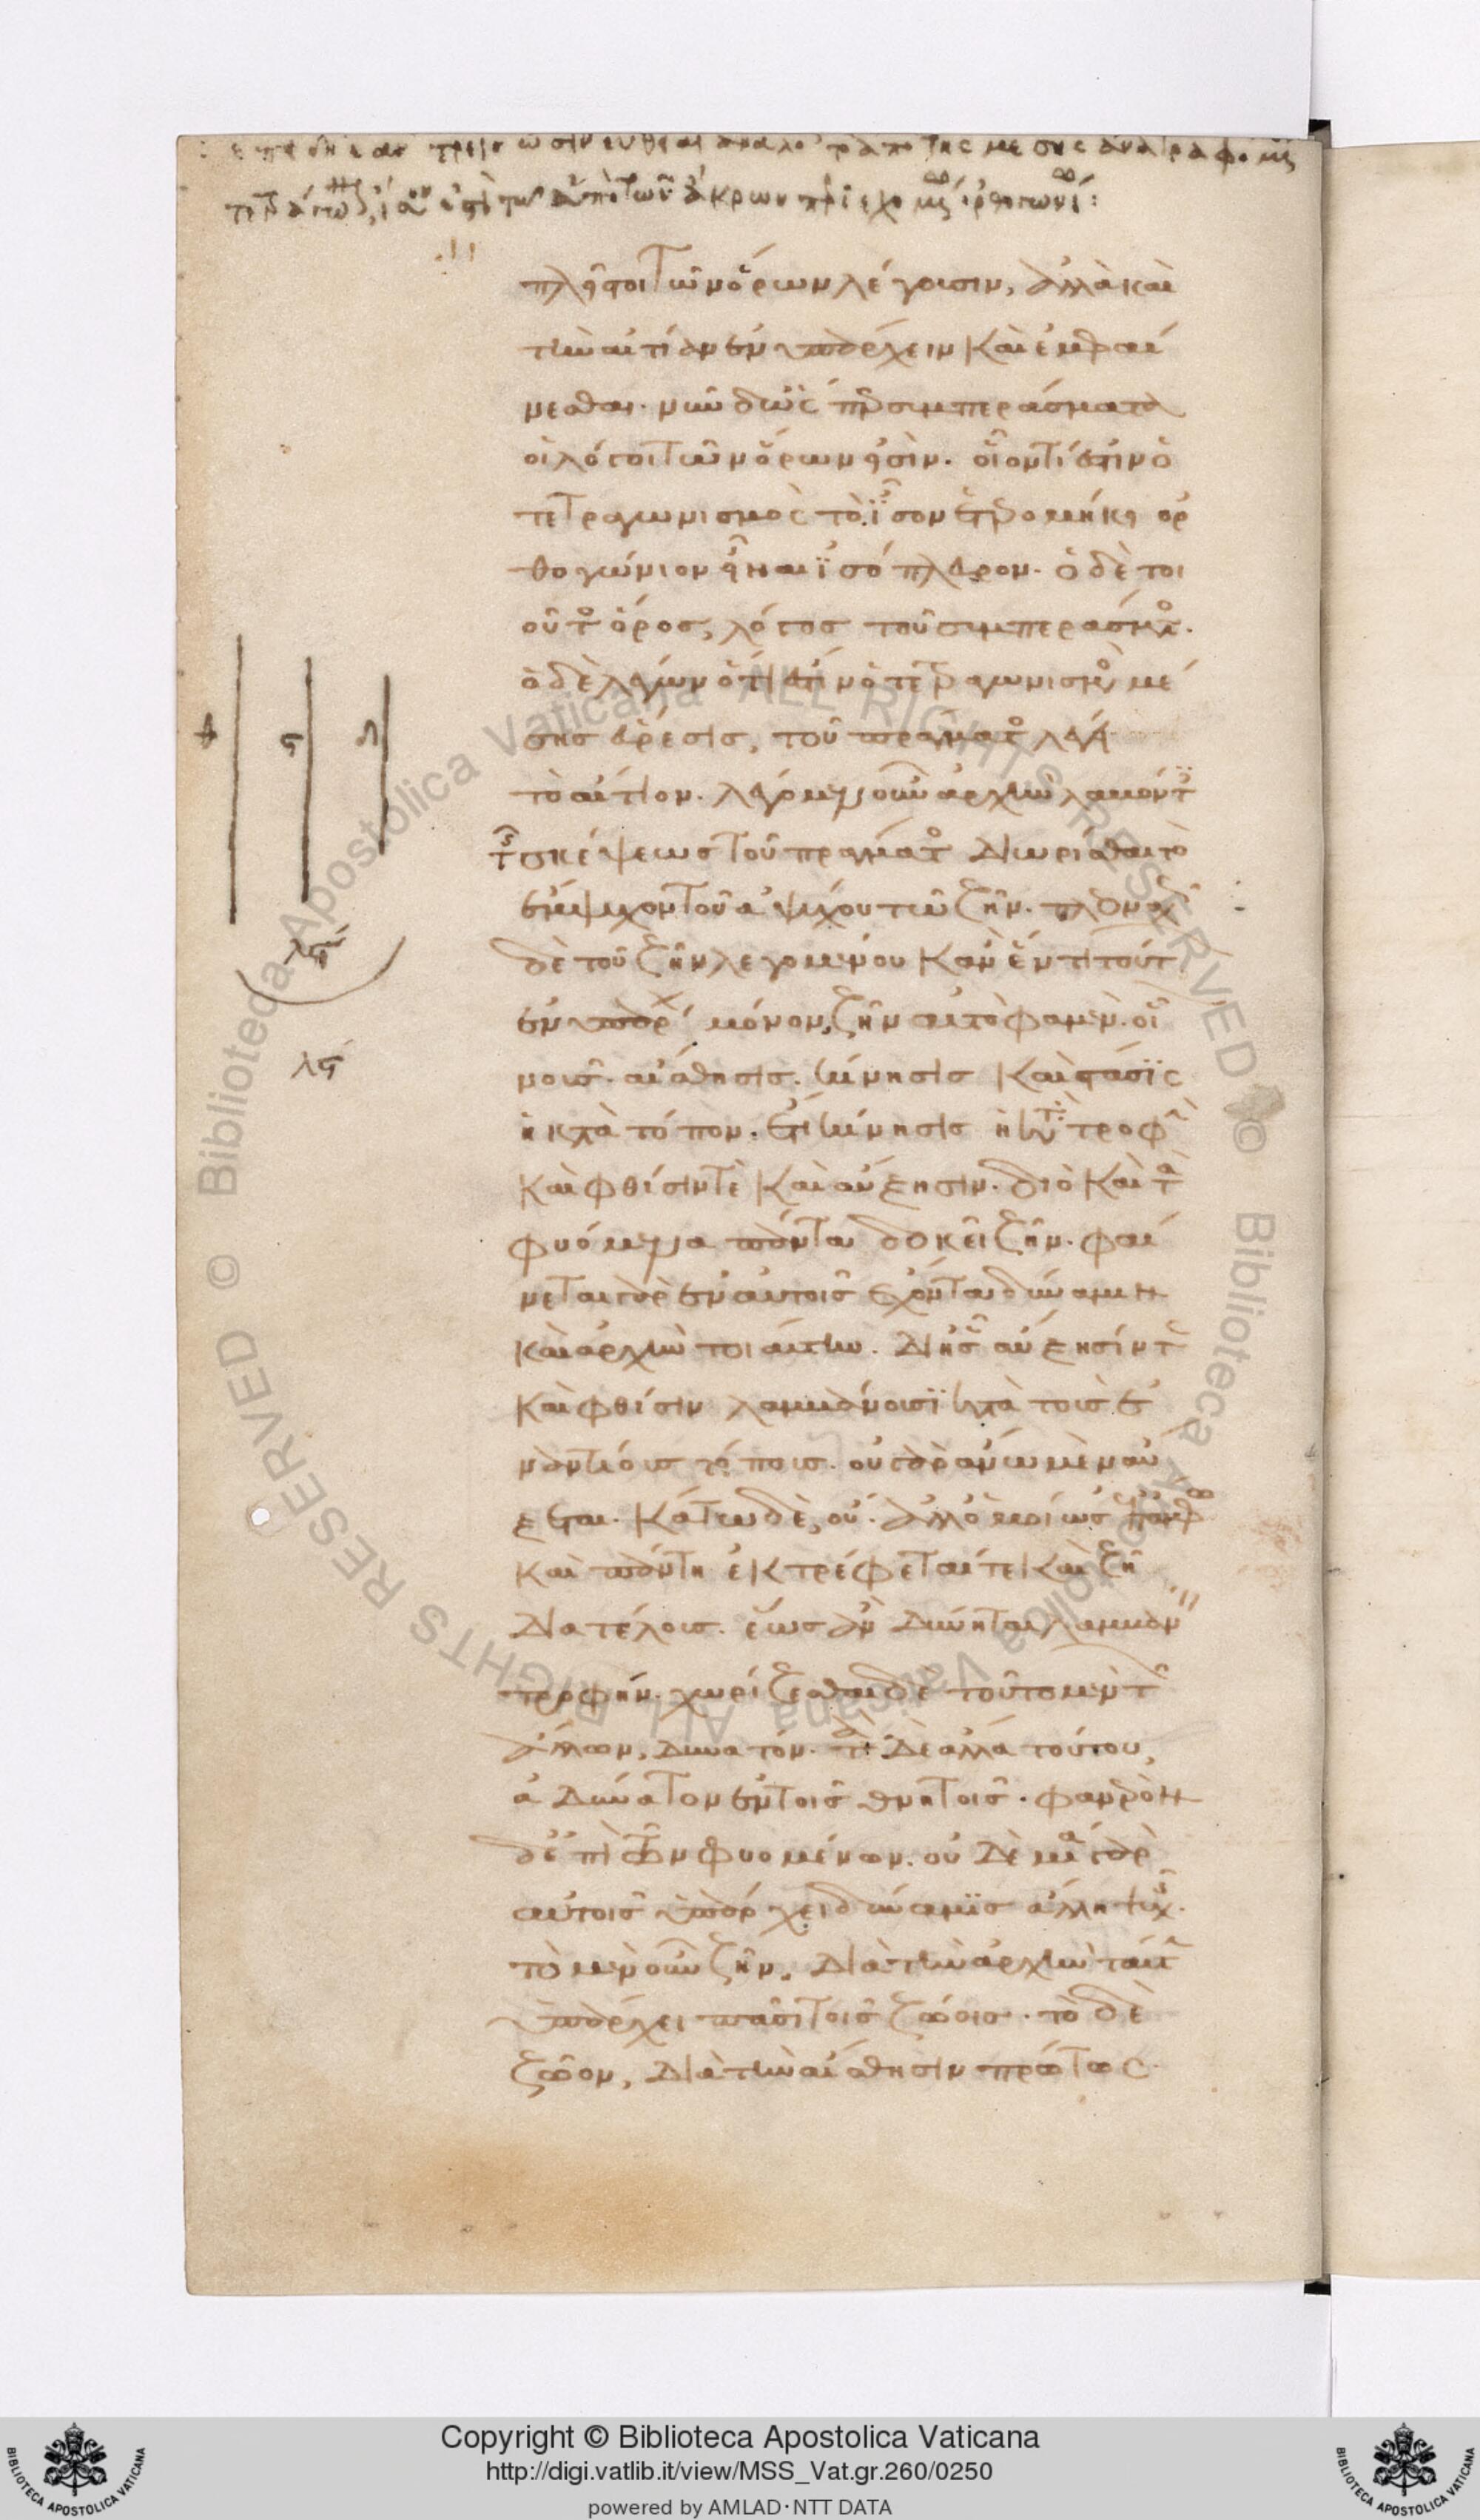 πλεῖστοι τῶν ὅρων λέγουσιν, ἀλλὰ καὶ
τὴν αἰτίαν ἐνυπάρχειν καὶ ἐμφαί
νεσθαι. νῦν δ' ὡς συμπεράσματα
οἱ λόγοι τῶν ὅρων εἰσὶν. οἷον τί ἐστιν ὁ
τετραγωνισμὸς τὸ ἴσον ἑτερομήκει ὀρ
θογώνιον εἶναι ἰσόπλευρον. ὁ δὲ τοι
οῦτος ὅρος, λόγος τοῦ συμπεράσματος.
ὁ δὲ λέγων ὅτι ἐστὶν ὁ τετραγωνισμὸς μέ
σης εὕρεσις, τοῦ πράγματος λέγει
τὸ αἴτιον. λέγομεν οὖν ἀρχὴν λαβόντες
τῆς σκέψεως τοῦ πράγματος διωρίσθαι τὸ
ἔμψυχον τοῦ ἀψύχου τῷ ζῆν. πλεοναχῶς
δὲ τοῦ ζῆν λεγομένου κἂν ἕν τι τούτων
ἐνυπάρχῃ μόνον, ζῆν αὐτὸ φαμέν. οἷον
νοῦς. αἴσθησις. κίνησις καὶ στάσις
ἡ κατὰ τόπον. ἔτι κίνησις ἡ κατὰ τροφὴν
καὶ φθίσιν τὲ καὶ αὔξησιν. διὸ καὶ τὰ
φυόμενα πάντα δοκεῖ ζῆν. φαί
νεται γὰρ ἐν αὐτοῖς ἔχοντα δύναμιν
καὶ ἀρχὴν τοιαύτην. δι' ἧς αὔξησίν τε
καὶ φθίσιν λαμβάνουσι κατὰ τοὺς ἐ
ναντίους τόπους. οὐ γὰρ ἄνω μὲν αὔ
ξεται. κάτω δὲ, οὔ. ἀλλ' ὁμοίως ἐπ' ἄμφω
καὶ πάντη ἐκτρέφεταί τε καὶ ζῇ
διὰ τέλους. ἕως ἂν δύνηται λαμβάνειν
τροφήν. χωρίζεσθαι δὲ τοῦτο μὲν τῶν
ἄλλων, δυνατόν. τὰ δὲ ἄλλα τούτου,
ἀδύνατον ἐν τοῖς θνητοῖς. φανερὸν
δ' ἐπὶ τῶν φυομένων. οὐδεμία γὰρ
αὐτοῖς ὑπάρχει δύναμις ἄλλη ψυχῆς.
τὸ μὲν οὖν ζῆν, διὰ τὴν ἀρχὴν ταύτην
ὑπάρχει πᾶσι τοῖς ζώοις. τὸ δὲ
ζῶον, διὰ τὴν αἴσθησιν πρώτως
Copyright © Biblioteca Apostolica Vaticana
http://digi.vatlib.it/view/MSS_Vat.gr.260/0250
powered by AMLAD·NTT DATA